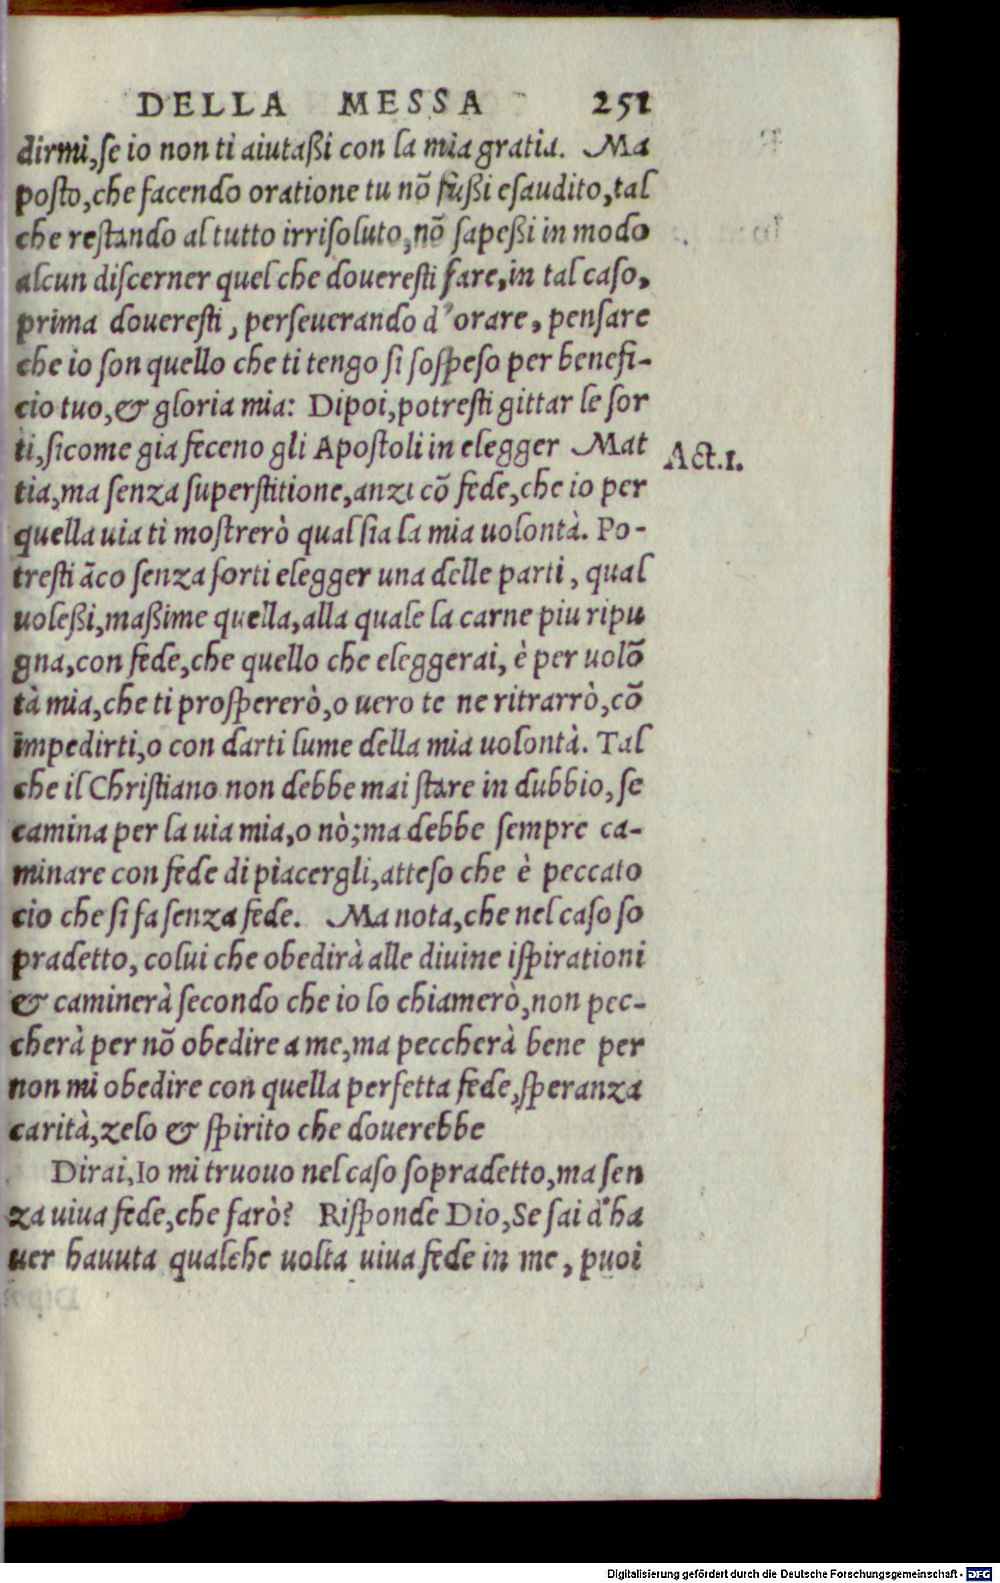 DELLA MESSA 251
dirmi,se io non ti aiutaßi con la mia gratia. Ma
posto,che facendo oratione tu nõ fußi esaudito,tal
che restando al tutto irrisoluto,nõ sapeßi in modo
alcun discerner quel che doueresti fare,in tal caso,
prima doueresti, perseuerando d'orare, pensare
che io son quello che ti tengo si sospeso per benefi-
cio tuo,& gloria mia: Dipoi,potresti gittar le sor
ti,sicome gia feceno gli Apostoli in elegger Mat
Act.1.
tia,ma senza superstitione,anzi cõ fede,che io per
quella uia ti mostrerò qual sia la mia uolontà. Po-
tresti ãco senza sorti elegger una delle parti, qual
uoleßi,maßime quella,alla quale la carne piu ripu
gna,con fede,che quello che eleggerai, è per uolõ
tà mia,che ti prospererò,o uero te ne ritrarrò,cõ
impedirti,o con darti lume della mia uolontà. Tal
che il Christiano non debbe mai stare in dubbio, se
camina per la uia mia,o nò;ma debbe sempre ca-
minare con fede di piacergli,atteso che è peccato
cio che si fa senza fede. Ma nota,che nel caso so
pradetto, colui che obedirà alle diuine ispirationi
& caminerà secondo che io lo chiamerò,non pec-
cherà per nõ obedire a me,ma peccherà bene per
non mi obedire con quella perfetta fede,speranza
carità,zelo & spirito che douerebbe
Dirai,Io mi truouo nel caso sopradetto,ma sen
za uiua fede,che farò? Risponde Dio,Se sai d'ha
uer hauuta qualche uolta uiua fede in me, puoi
Digitalisierung gefördert durch die Deutsche Forschungsgemeinschaft - DFG